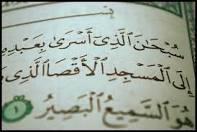 سُبْحَٰنَ ٱلَّذِىٓ أَسْرَىٰ بِعَبْدِهِۦ
إِلَى ٱلْمَسْجِدِ ٱلْأَقْصَا ٱلَّذِى
هُوَ ٱلسَّمِيعُ ٱلْبَصِيرُ ١